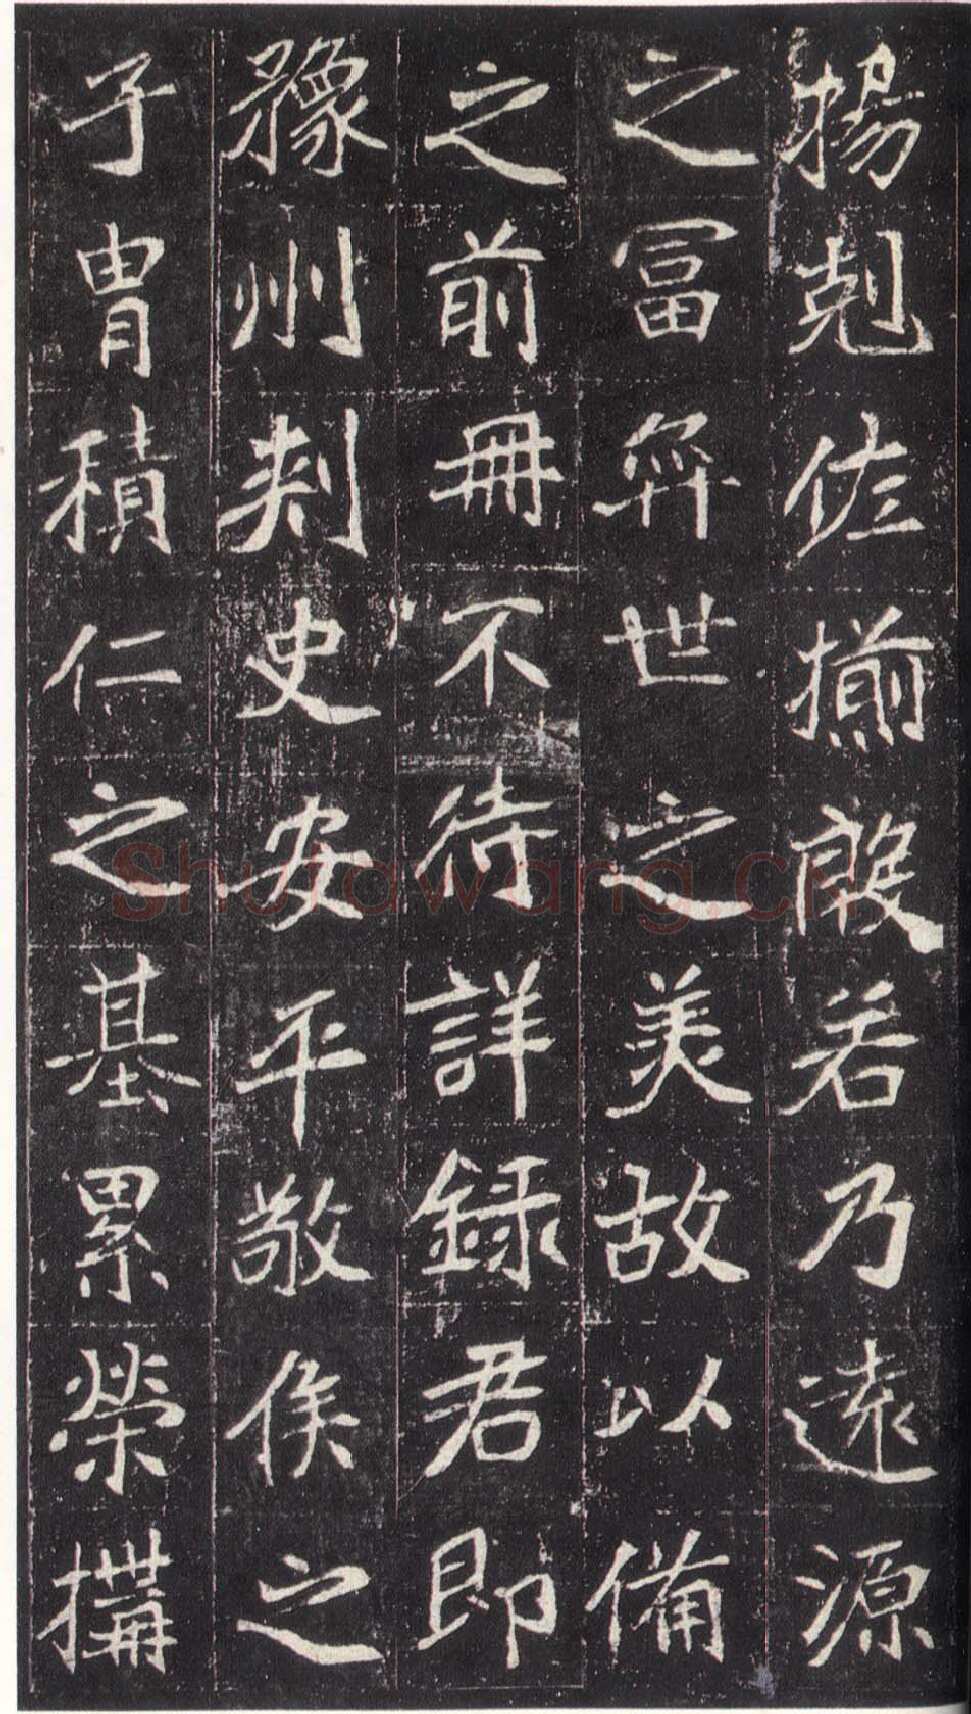 揚剋佐揃殷若乃遠源
之冨弈世之美故以備
之前冊不待詳録君即
豫州刾史安平敬侯之
子冑積仁之基累榮搆
Shufawang.cn